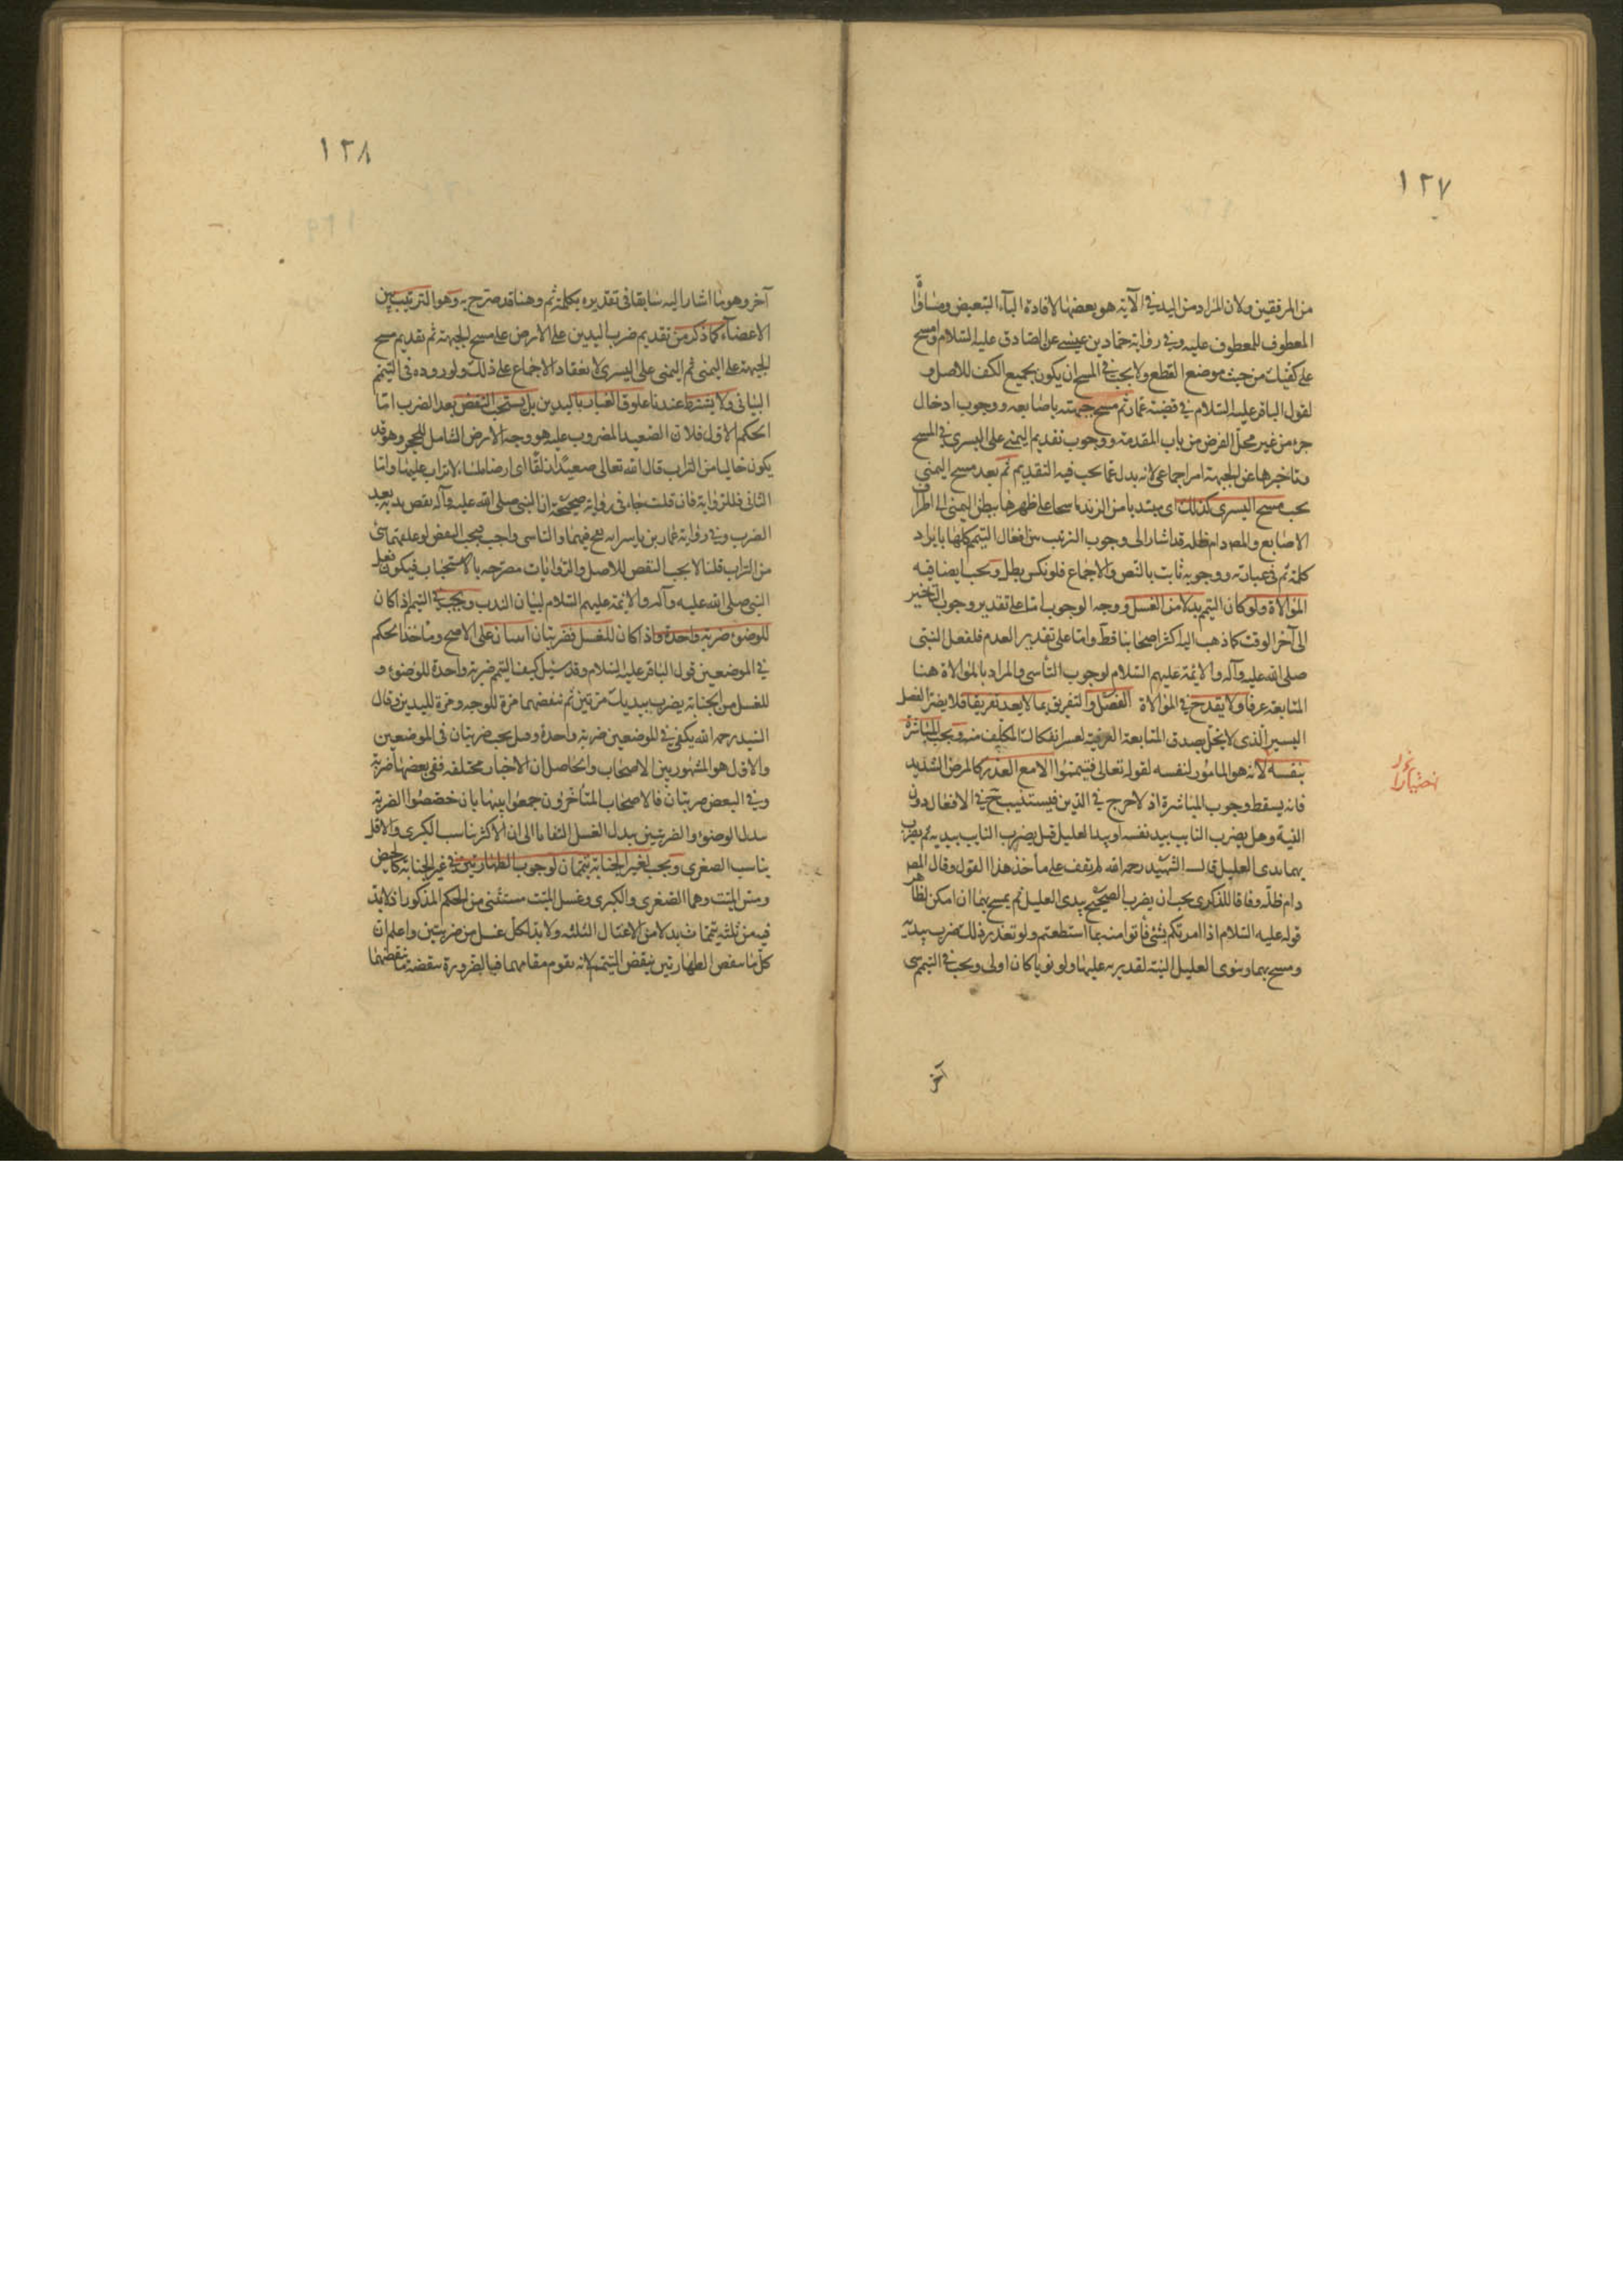 ١٢٧
من المرفقين ولان المراد من اليد في الآية هو بعضها لافادة البآء التبعيض
المعطوف للمعطوف عليه وفي رواية حماد بن عيسى عن الصادق عليه السلام وامسح
على كفيك من حيث موضع القطع ولا يجب في المسح ان يكون بجميع الكف للاصل و
لقول الباقر عليه السلام في قضية عمار ثم مسح جبهته باصابعه ووجوب ادخال
جزء من غير محل الفرض من باب المقدمة ووجوب تقديم اليمنى على اليسرى في المسح
وتاخيرها عن الجبهة امر اجماعي لانه بدل عما يجب فيه التقديم ثم بعد مسح اليمنى
يجب مسح اليسرى كذلك اى مبتديا من الزند ماسحا على ظهرها ببطن اليمنى الى اطراف
الاصابع والمصـ دام ظله قد اشار الى وجوب الترتيب بين افعال التيمم كلها بايراد
كلمة ثم في عباراته ووجوبه ثابت بالنص والاجماع فلو نكس بطل ويجب ايضا فيه
الموالاة ولو كان التيمم بدلا من الغسل ووجه الوجوب اما على تقدير وجوب التاخير
الى آخر الوقت كما ذهب اليه اكثر اصحابنا فظ واما على تقدير العدم فلفعل النبى
صلى الله عليه وآله والائمة عليهم السلام لوجوب التأسى والمراد بالموالاة هنا
المتابعة عرفا ولا يقدح في الموالاة الفصل والتفريق بما لا يعد تفريقا فلا يضر الفصل
اليسير الذى لا يخل بصدق المتابعة العرفية لعسر انفكاك المكلف منه ويجب المباشرة
بنفسه لانه هو المامور لنفسه لقوله تعالى فتيمموا الا مع العذر كالمرض الشديد
فانه يسقط وجوب المباشرة اذ لا حرج في الدين فيستنيب ح في الافعال دون
النية وهل يضرب النايب بيد نفسه او بيد العليل قيل يضرب النايب بيديه ثم يضرب
بهما يدى العليل قال الشهيد رحمه الله لم نقف على مأخذ هذا القول وقال المصـ
دام ظله وفاقا للذكرى يجب ان يضرب الصحيح بيدى العليل ثم يمسح بهما ان امكن لظاهر
قوله عليه السلام اذا امرتكم بشئ فأتوا منه بما استطعتم ولو تعذر ذلك يضرب بيديه
ومسح بهما وينوى العليل النية لقدرته عليها ولو نويا كان اولى ويجب في التيمم شئ
آخر
١٢٨
آخر وهو ما اشار اليه سابقا في تقديره بكلمة ثم وهنا قد صرح به وهو الترتيب بين
الاعضآء كما ذكر من تقديم ضرب اليدين على الارض على مسح الجبهة ثم تقديم مسح
الجبهة على اليمنى ثم اليمنى على اليسرى لانعقاد الاجماع على ذلك ولوروده في التيمم
البيانى ولا يشترط عندنا علوق الغبار باليدين بل يستحب النفض بعد الضرب اما
الحكم الاول فلان الصعيد المضروب عليه هو وجه الارض الشامل للحجر وهو قد
يكون خاليا من التراب قال الله تعالى صعيدا زلقا اى ارضا ملساء لا تراب عليها واما
الثانى فللرواية فان قلت جاء في رواية صحيحة ان النبى صلى الله عليه وآله نفض يديه بعد
الضرب وفي رواية عمار بن ياسر انه نفخ فيهما والتاسى واجب فيجب النفض لو علق بهما شئ
من التراب قلنا لا يجب النفض للاصل والروايات مصرحة بالاستحباب فيكون فعل
النبى صلى الله عليه وآله والائمة عليهم السلام لبيان الندب ويجب في التيمم اذا كان
للوضوء ضربة واحدة واذا كان للغسل فضربتان اثنتان على الاصح وماخذ الحكم
في الموضعين قول الباقر عليه السلام وقد سئل كيف التيمم ضربة واحدة للوضوء و
للغسل من الجنابة يضرب بيديك مرتين ثم تنفضهما مرة للوجه ومرة لليدين وقال
السيد رحمه الله يكفى في الموضعين ضربة واحدة وقيل يجب ضربتان في الموضعين
والاول هو المشهور بين الاصحاب والحاصل ان الاخبار مختلفة ففي بعضها ضربة
وفي البعض ضربتان فالاصحاب المتأخرون جمعوا بينها بان خصصوا الضربة
ببدل الوضوء والضربتين ببدل الغسل التفاتا الى ان الاكثر يناسب الكبرى والاقل
يناسب الصغرى ويجب لغير الجنابة تيممان لوجوب الطهارتين في غير الجنابة كالحيض
ومس الميت وهما الصغرى والكبرى وغسل الميت مستثنى من الحكم المذكور اذ لابد
فيه من ثلثة تيممات بدلا من الاغسال الثلثة ولابد لكل غسل من ضربتين واعلم ان
كل ما ينقض الطهارتين ينقض التيمم لانه يقوم مقامهما فبالضرورة ينقضه ما ينقضهما